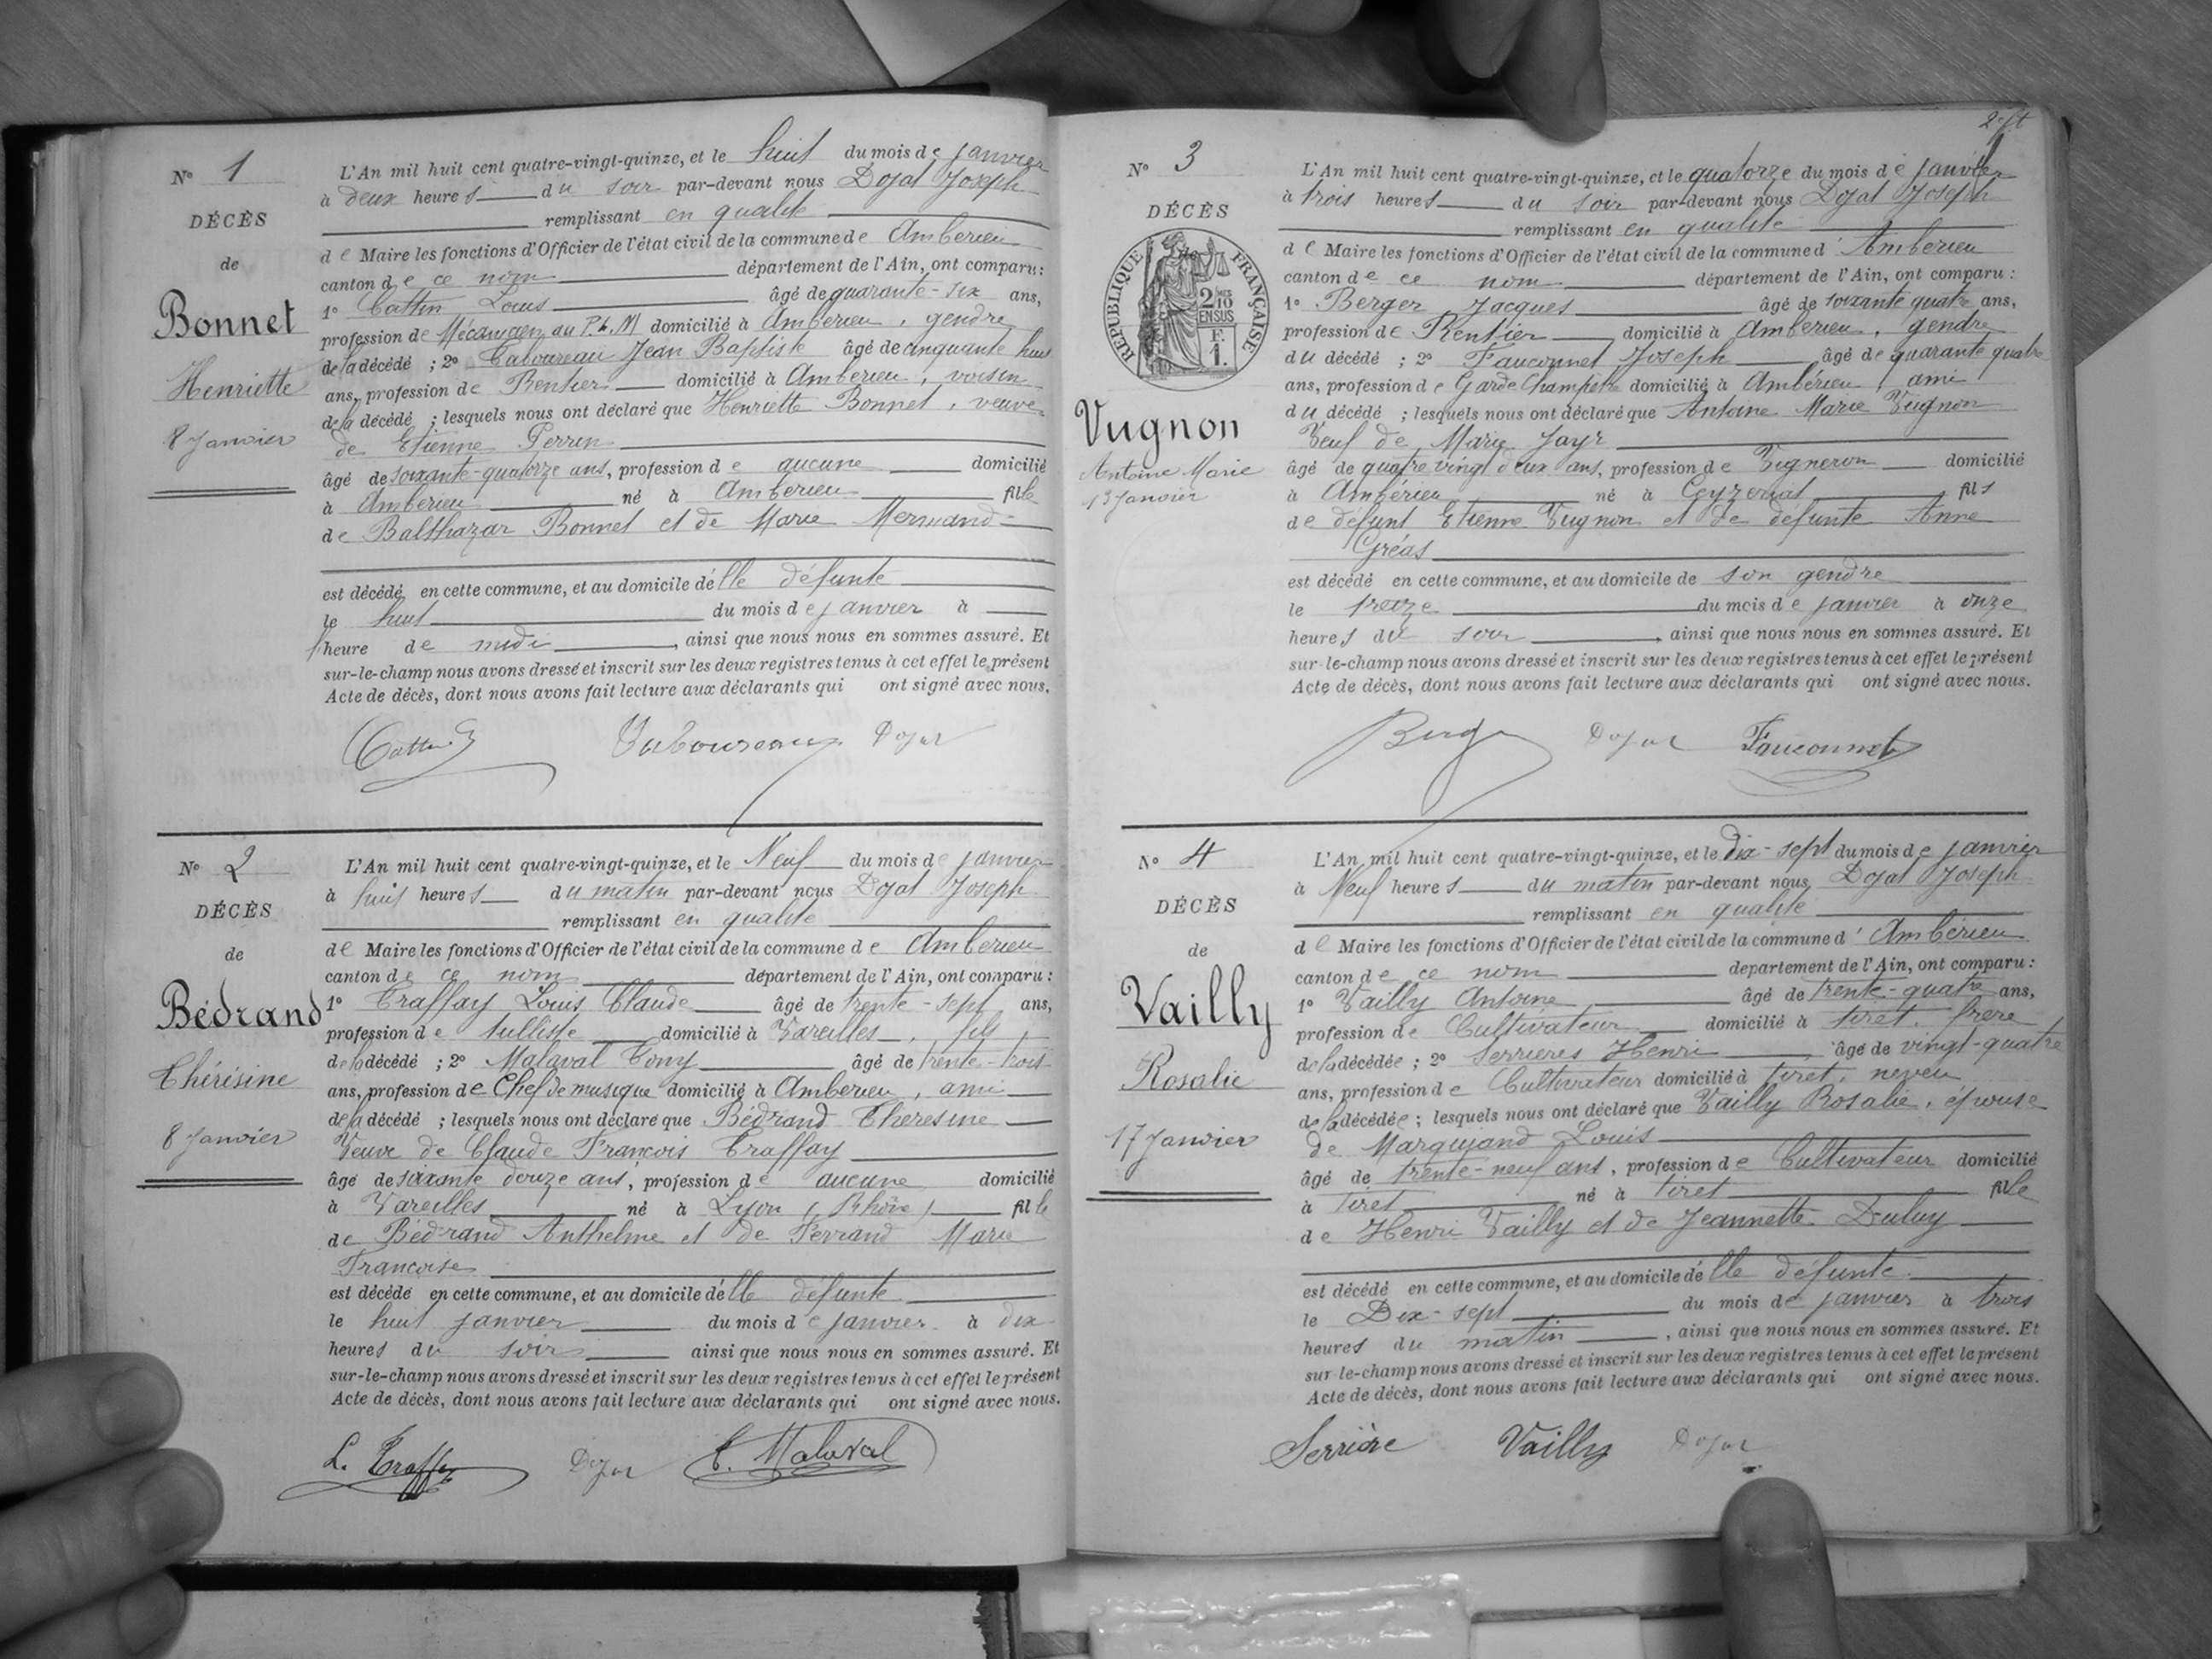 N° 1
DÉCÈS
de
Bonnet
Henriette
8 Janvier
L'An mil huit cent quatre-vingt-quinze, et le huit du mois de janvier
à deux heures du soir par-devant nous Dojat Joseph
remplissant en qualité
de Maire les fonctions d'Officier de l'état civil de la commune de Amberieu
canton de ce nom département de l'Ain, ont comparu:
1° Cattin Louis âgé de quarante-six ans,
profession de Mécanicien au P.L.M domicilié à Amberieu, gendre
de la décédé ; 2° Jean Baptiste âgé de cinquante huit
ans, profession de Rentier domicilié à Amberieu, voisin
de la décédé ; lesquels nous ont déclaré que Henriette Bonnet, veuve
de Etienne Perrin
âgé de soixante-quatorze ans, profession de aucune domicilié
à Amberieu né à Amberieu fille
de Balthazar Bonnet et de Marie Mermand
est décédé en cette commune, et au domicile de lle défunte
le huit du mois de janvier à
heure de midi, ainsi que nous nous en sommes assuré. Et
sur-le-champ nous avons dressé et inscrit sur les deux registres tenus à cet effet le présent
Acte de décès, dont nous avons fait lecture aux déclarants qui ont signé avec nous.
Cattin Dojat
N° 2
DÉCÈS
de
Bédrand
Thérésine
8 Janvier
L'An mil huit cent quatre-vingt-quinze, et le Neuf du mois de janvier
à huit heures du matin par-devant nous Dojat Joseph
remplissant en qualité
de Maire les fonctions d'Officier de l'état civil de la commune de Amberieu
canton de ce nom département de l'Ain, ont comparu:
1° Traffay Louis Claude âgé de trente-sept ans,
profession de tulliste domicilié à Vareilles, fils
de la décédé ; 2° Malaval Tony âgé de trente-trois
ans, profession de Chef de musique domicilié à Amberieu, ami
de la décédé ; lesquels nous ont déclaré que Bédrand Theresine
Veuve de Claude François Traffay
âgé de soixante douze ans, profession de aucune domicilié
à Vareilles né à Lyon (Rhône) fille
de Bédrand Anthelme et de Ferrand Marie
Francoise
est décédé en cette commune, et au domicile de lle défunte
le huit janvier du mois de janvier à dix
heures du soir ainsi que nous nous en sommes assuré. Et
sur-le-champ nous avons dressé et inscrit sur les deux registres tenus à cet effet le présent
Acte de décès, dont nous avons fait lecture aux déclarants qui ont signé avec nous.
L. Traffay Dojat T. Malaval
N° 3
DÉCÈS
RÉPUBLIQUE FRANÇAISE
2/10 EN SUS
F. 1.
Vugnon
Antoine Marie
13 Janvier
L'An mil huit cent quatre-vingt-quinze, et le quatorze du mois de janvier
à trois heures du soir par-devant nous Dojat Joseph
remplissant en qualité
de Maire les fonctions d'Officier de l'état civil de la commune d'Amberieu
canton de ce nom département de l'Ain, ont comparu :
1° Berger Jacques âgé de soixante quatre ans,
profession de Rentier domicilié à Amberieu, gendre
du décédé ; 2° Fauconnet Joseph âgé de quarante quatre
ans, profession de Garde Champêtre domicilié à Ambérieu, ami
du décédé ; lesquels nous ont déclaré que Antoine Marie Vugnon
Veuf de Marie Jayr
âgé de quatre vingt deux ans, profession de Vigneron domicilié
à Ambérieu né à Ceyzeriat fils
de défunt Etienne Vugnon et de défunte Anne
Gréas
est décédé en cette commune, et au domicile de son gendre
le treize du mois de janvier à onze
heures du soir, ainsi que nous nous en sommes assuré. Et
sur-le-champ nous avons dressé et inscrit sur les deux registres tenus à cet effet le présent
Acte de décès, dont nous avons fait lecture aux déclarants qui ont signé avec nous.
Berger Dojat Fauconnet
N° 4
DÉCÈS
de
Vailly
Rosalie
17 Janvier
L'An mil huit cent quatre-vingt-quinze, et le Dix-sept du mois de janvier
à Neuf heures du matin par-devant nous Dojat Joseph
remplissant en qualité
de Maire les fonctions d'Officier de l'état civil de la commune d'Ambérieu
canton de ce nom departement de l'Ain, ont comparu:
1° Vailly Antoine âgé de trente-quatre ans,
profession de Cultivateur domicilié à Tiret, frère
de la décédée ; 2° Serrieres Henri âgé de vingt-quatre
ans, profession de Cultivateur domicilié à Tiret, neveu
de la décédée ; lesquels nous ont déclaré que Vailly Rosalie, épouse
de Marquand Louis
âgé de trente-neuf ans, profession de Cultivateur domicilié
à Tiret né à Tiret fille
de Henri Vailly et de Jeannette Duluy
est décédé en cette commune, et au domicile de lle défunte
le Dix-sept du mois de janvier à trois
heures du matin, ainsi que nous nous en sommes assuré. Et
sur-le-champ nous avons dressé et inscrit sur les deux registres tenus à cet effet le présent
Acte de décès, dont nous avons fait lecture aux déclarants qui ont signé avec nous.
Serrière Vailly Dojat